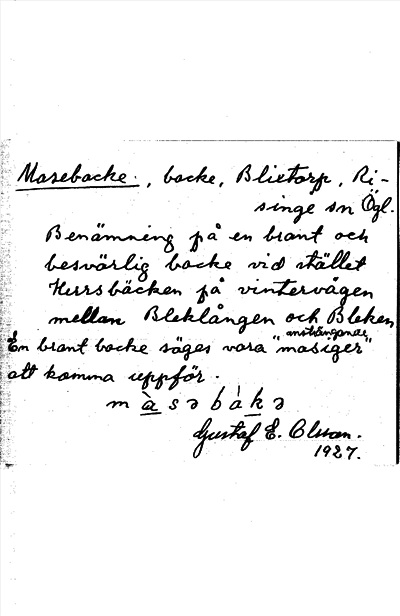 Masebacke , backe, Blixtorp, Ri-
singe sn Ögl.
Benämning på en brant och
besvärlig backe vid stället
Herrsbäcken på vintervägen
mellan Bleklången och Bleken
ansträngande
En brant backe säges vara "masiger"
att komma uppför.
m à s ə b à k ə
Gustaf E. Olsson.
1927.